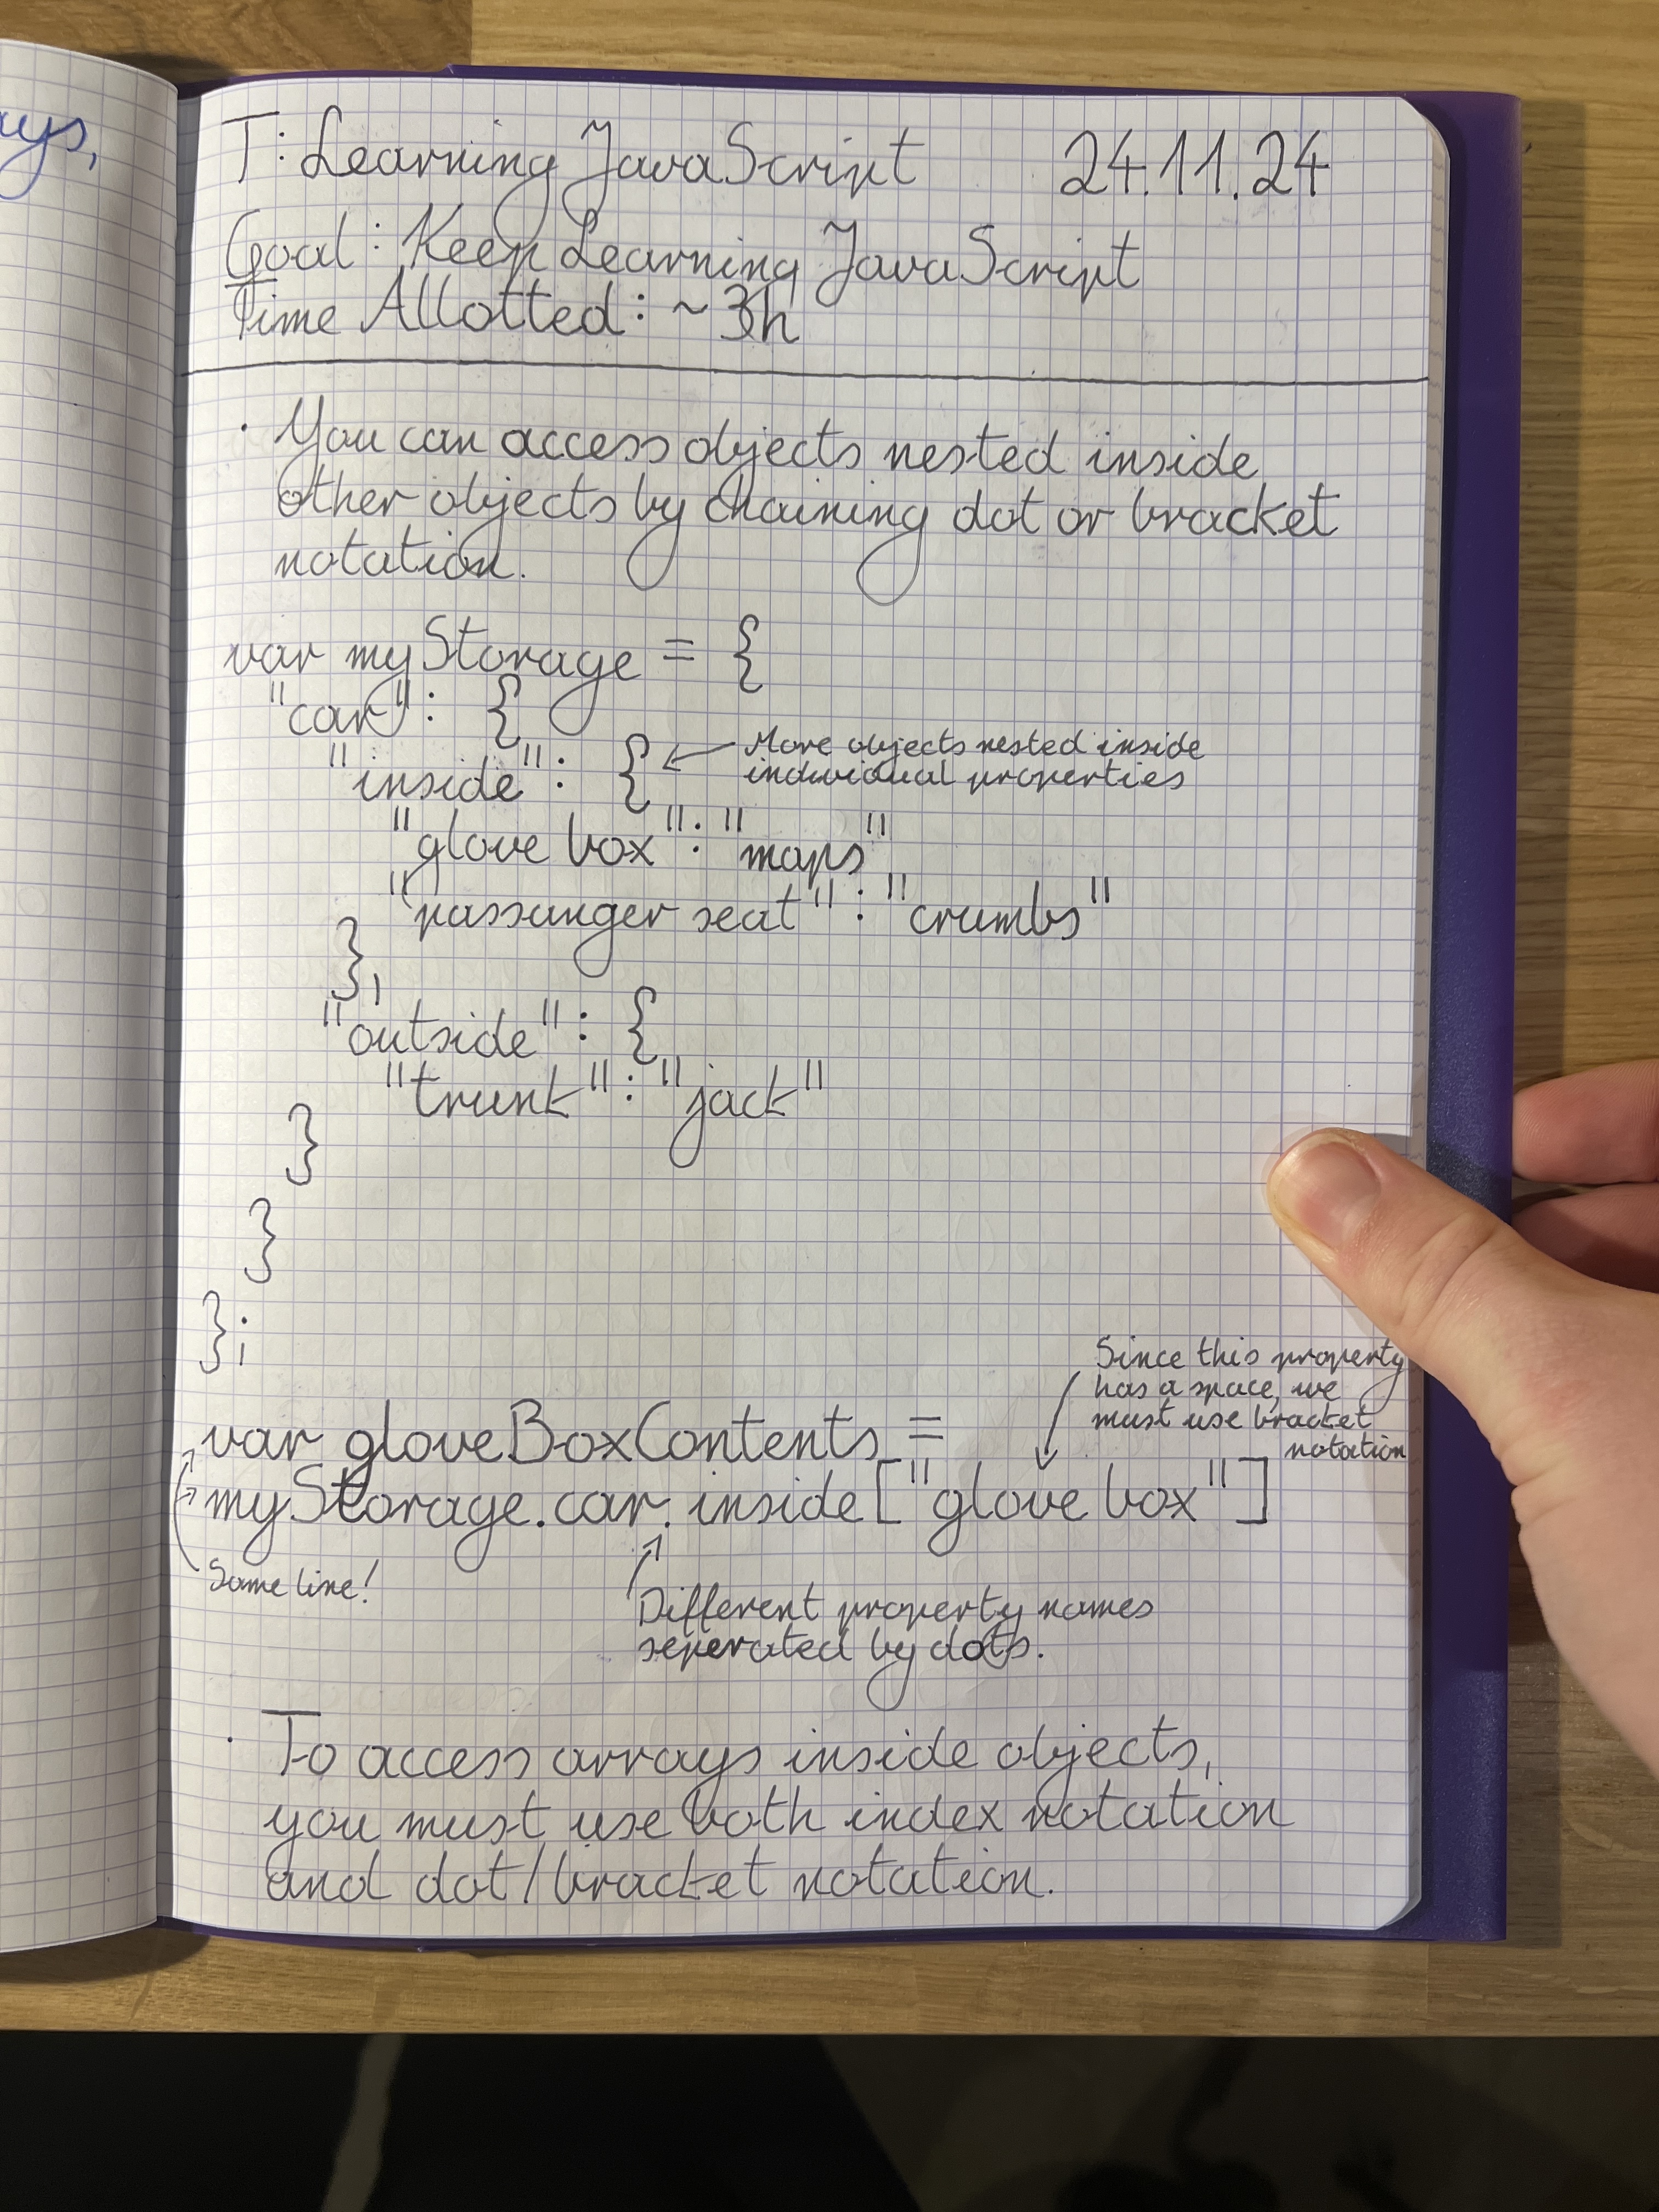 ays,
T: Learning JavaScript 24.11.24
Goal: Keep Learning JavaScript
Time Allotted: ~3h
· You can access objects nested inside
other objects by chaining dot or bracket
notation.
var myStorage = {
"car": {
"inside": {
More objects nested inside
individual properties
"glove box": "maps"
"passanger seat": "crumbs"
},
"outside": {
"trunk": "jack"
}
}
};
Since this property
has a space, we
must use bracket
notation
var gloveBoxContents =
myStorage.car.inside["glove box"]
Same line!
Different property names
seperated by dots.
· To access arrays inside objects,
you must use both index notation
and dot/bracket notation.